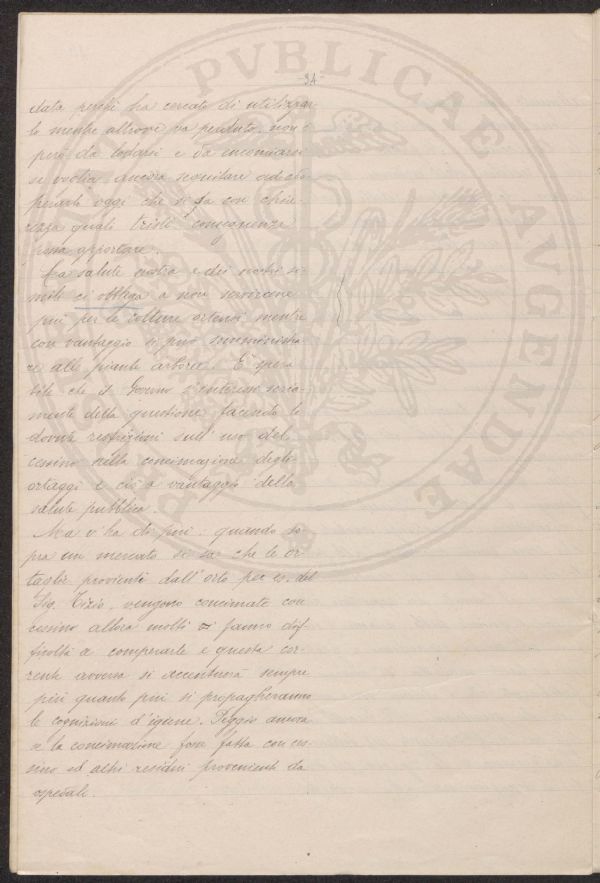 -34-
data perchè ha cercato di utilizzar
lo mentre altrove va perduto, non è
però da lodarsi e da incoraggiarsi
se voglia ancora seguitare ad ado
perarlo oggi che si sa con chia-
rezza quali tristi conseguenze
possa apportare.
La salute nostra e dei nostri si-
mili ci obbliga a non servircene
più per le colture ortensi mentre
con vantaggio si può somministra
re alle piante arboree. È spera
bile che il Governo s'interessi seria-
mente della questione facendo le
dovute restrizioni sull'uso del
cessino nella concimazione degli
ortaggi e ciò a vantaggio della
salute pubblica.
Ma v'ha di più: quando so-
pra un mercato si sa che le or
taglie provienti dall'orto per es. del
Sig. Tizio vengono concimate con
cessino allora molti si fanno dif
ficoltà a comperarle e questa cor-
rente avversa si accentuerà sempre
più quanto più si propagheranno
le cognizioni d'igiene. Peggio ancora
se la concimazione fosse fatta con ces-
sino ed altri residui provenienti da
ospedale.
PVBLICAE AVGENDAE